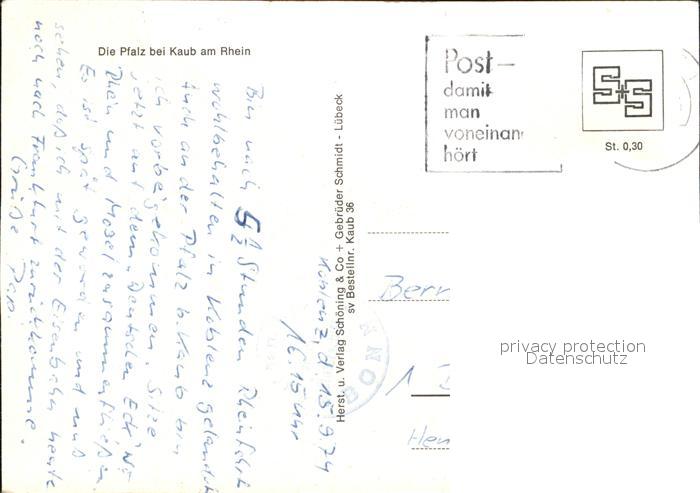 Die Pfalz bei Kaub am Rhein
Post-
damit
man
voneinan
hört
St. 0,30
Koblenz, d. 15.9.74
16.15 Uhr
Bin nach 5 1/2 Stunden Rheinfahrt
wohlbehalten in Koblenz gelandet
Auch an der Pfalz b. Kaub bin
ich vorbeigekommen. Sitze
jetzt auf dem "Deutschen Eck" wo
Rhein und Mosel zusammenfließen
Es ist spät geworden und muß
sehen, daß ich mit der Eisenbahn heute
noch nach Frankfurt zurückkomme.
Grüße
Herst. u. Verlag Schöning & Co + Gebrüder Schmidt - Lübeck
sv Bestellnr. Kaub 36
BONN
Bern
1
Hen
privacy protection
Datenschutz